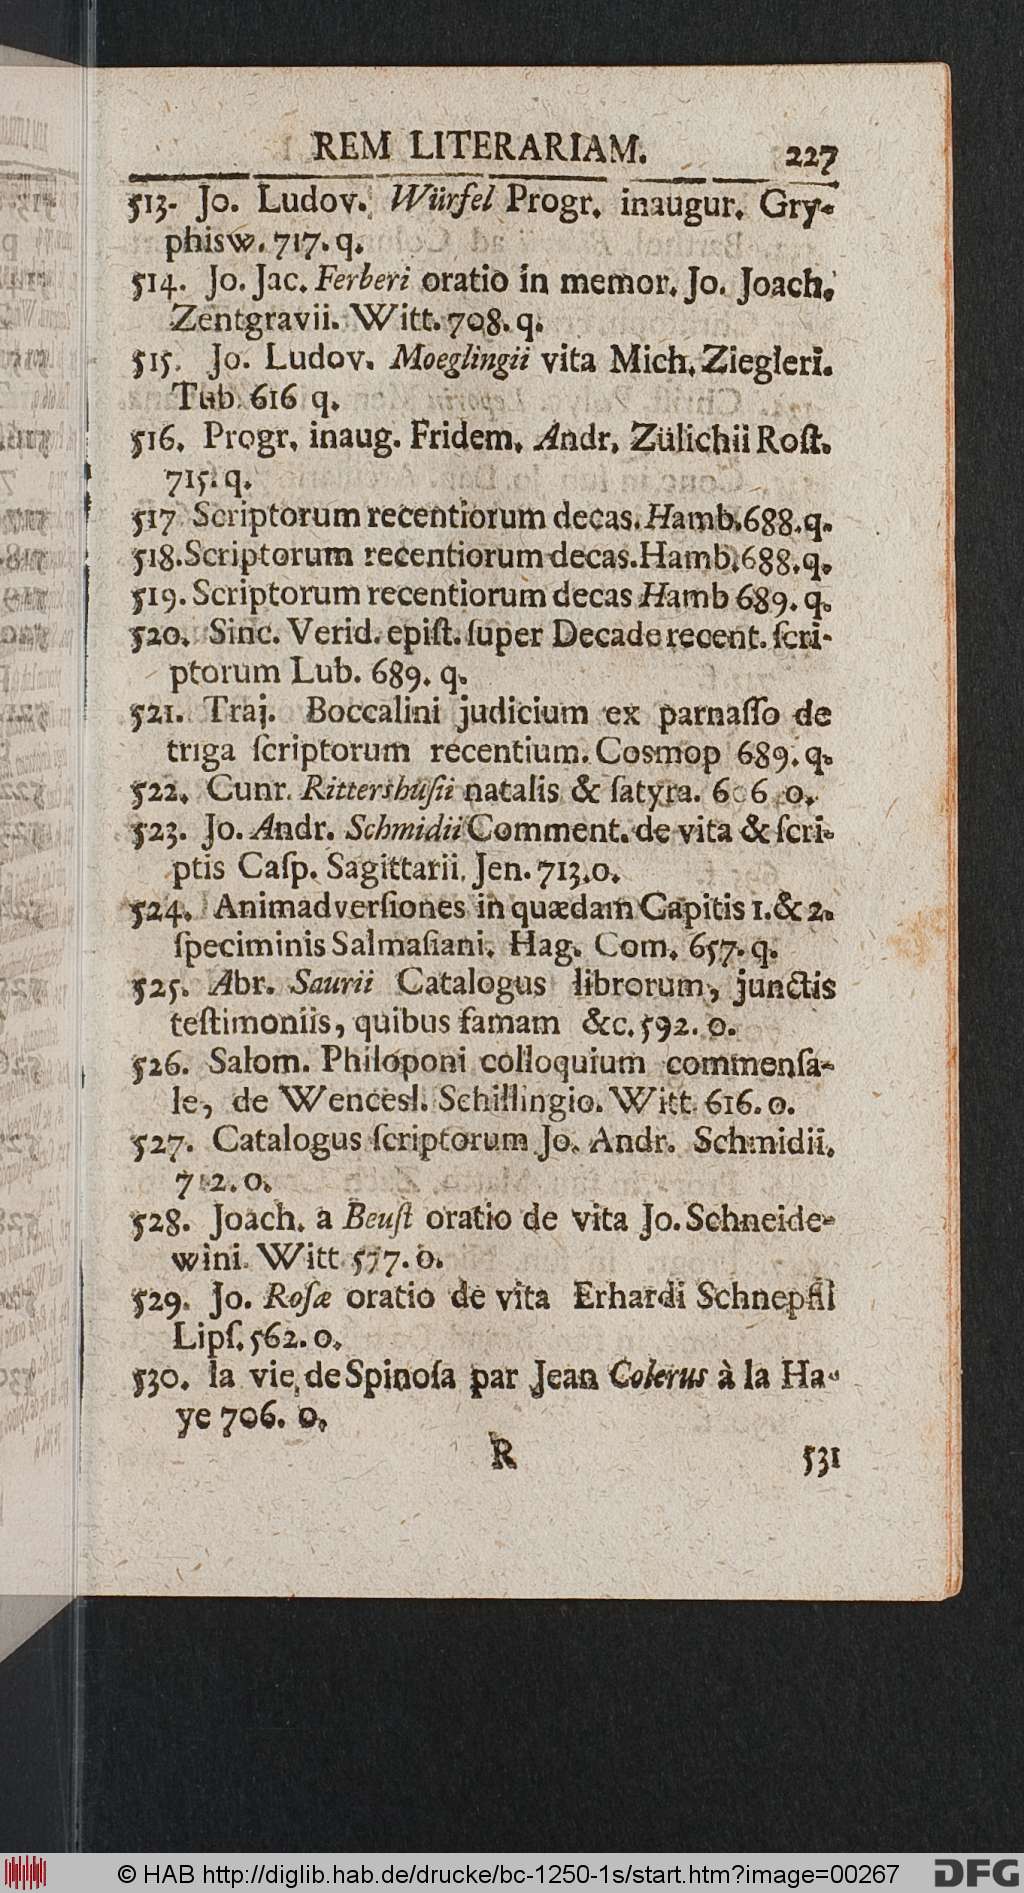 REM LITERARIAM. 227
513. Jo. Ludov. Würfel Progr. inaugur. Gry-
phisw. 717. q.
514. Jo. Jac. Ferberi oratio in memor. Jo. Joach.
Zentgravii. Witt. 708. q.
515. Jo. Ludov. Moeglingii vita Mich. Ziegleri.
Tub. 616 q.
516. Progr. inaug. Fridem. Andr. Zülichii Roſt.
715. q.
517 Scriptorum recentiorum decas. Hamb. 688. q.
518. Scriptorum recentiorum decas. Hamb. 688. q.
519. Scriptorum recentiorum decas Hamb 689. q.
520. Sinc. Verid. epiſt. ſuper Decade recent. ſcri-
ptorum Lub. 689. q.
521. Traj. Boccalini judicium ex parnaſſo de
triga ſcriptorum recentium. Cosmop 689. q.
522. Cunr. Rittershuſii natalis & ſatyra. 606 o.
523. Jo. Andr. Schmidii Comment. de vita & ſcri-
ptis Caſp. Sagittarii. Jen. 713. o.
524. Animadverſiones in quædam Capitis 1. & 2.
ſpeciminis Salmaſiani. Hag. Com. 657. q.
525. Abr. Saurii Catalogus librorum, junctis
teſtimoniis, quibus famam &c. 592. o.
526. Salom. Philoponi colloquium commenſa-
le, de Wencesl. Schillingio. Witt. 616. o.
527. Catalogus ſcriptorum Jo. Andr. Schmidii.
712. o.
528. Joach. a Beuſt oratio de vita Jo. Schneide-
wini. Witt 577. o.
529. Jo. Roſæ oratio de vita Erhardi Schnepfii
Lipſ. 562. o.
530. la vie de Spinoſa par Jean Colerus à la Ha-
ye 706. o.
R 531
© HAB http://diglib.hab.de/drucke/bc-1250-1s/start.htm?image=00267 DFG